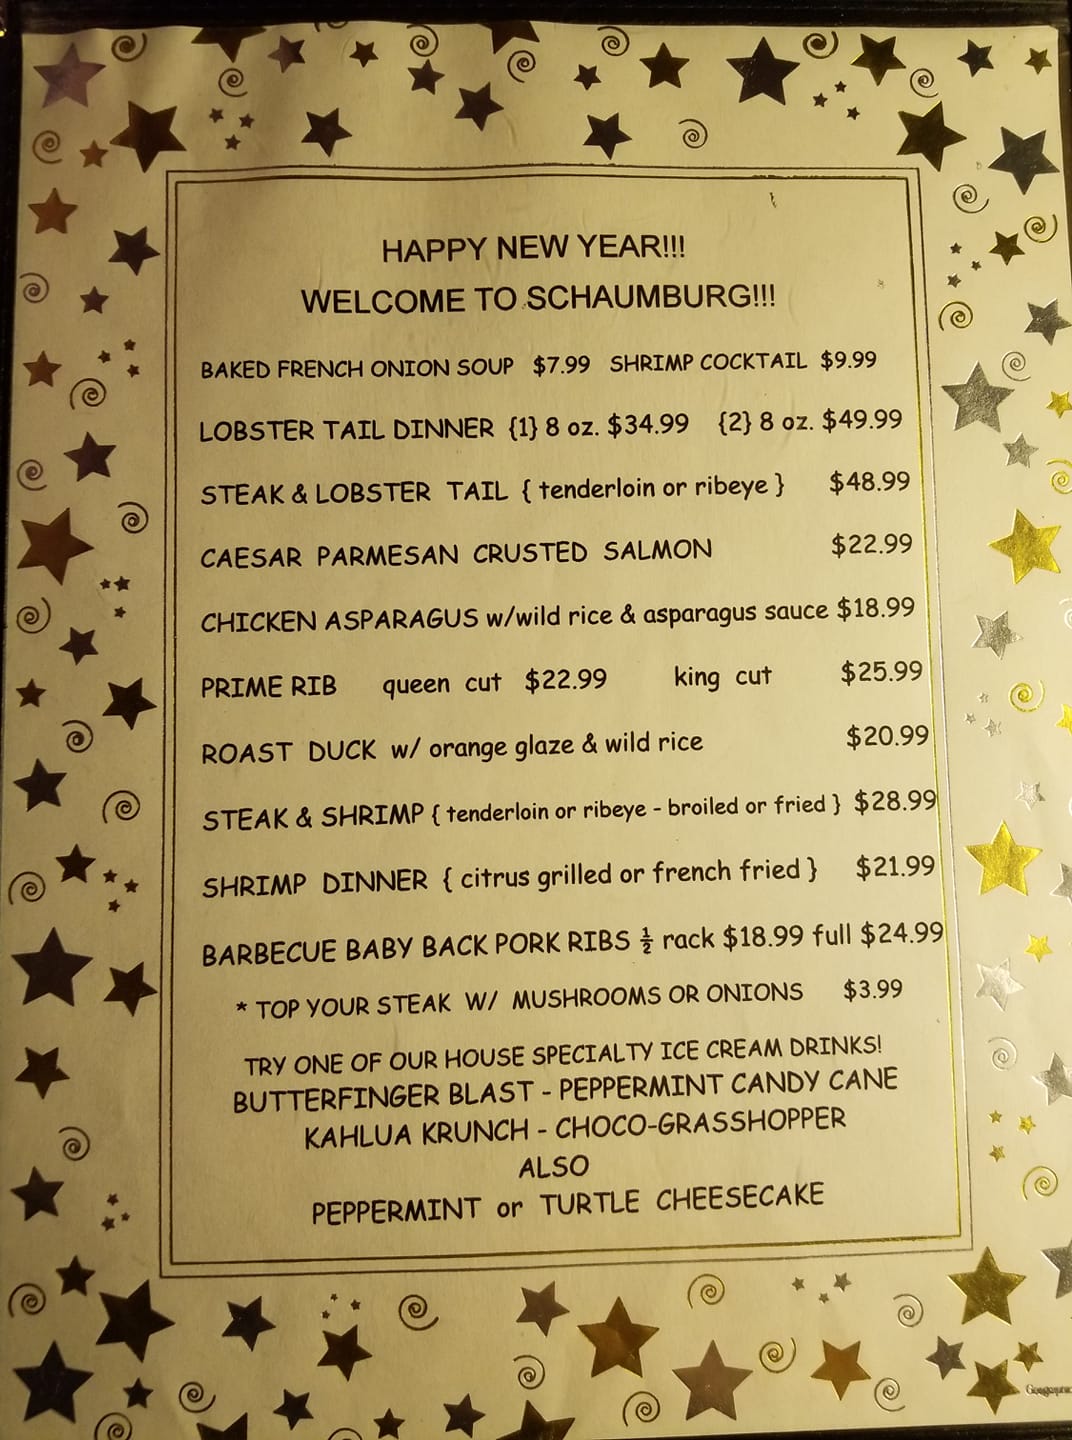 HAPPY NEW YEAR!!!
WELCOME TO SCHAUMBURG!!!
BAKED FRENCH ONION SOUP $7.99 SHRIMP COCKTAIL $9.99
LOBSTER TAIL DINNER {1} 8 oz. $34.99 {2} 8 oz. $49.99
STEAK & LOBSTER TAIL { tenderloin or ribeye } $48.99
CAESAR PARMESAN CRUSTED SALMON $22.99
CHICKEN ASPARAGUS w/wild rice & asparagus sauce $18.99
PRIME RIB queen cut $22.99 king cut $25.99
ROAST DUCK w/ orange glaze & wild rice $20.99
STEAK & SHRIMP { tenderloin or ribeye - broiled or fried } $28.99
SHRIMP DINNER { citrus grilled or french fried } $21.99
BARBECUE BABY BACK PORK RIBS ½ rack $18.99 full $24.99
* TOP YOUR STEAK W/ MUSHROOMS OR ONIONS $3.99
TRY ONE OF OUR HOUSE SPECIALTY ICE CREAM DRINKS!
BUTTERFINGER BLAST - PEPPERMINT CANDY CANE
KAHLUA KRUNCH - CHOCO-GRASSHOPPER
ALSO
PEPPERMINT or TURTLE CHEESECAKE